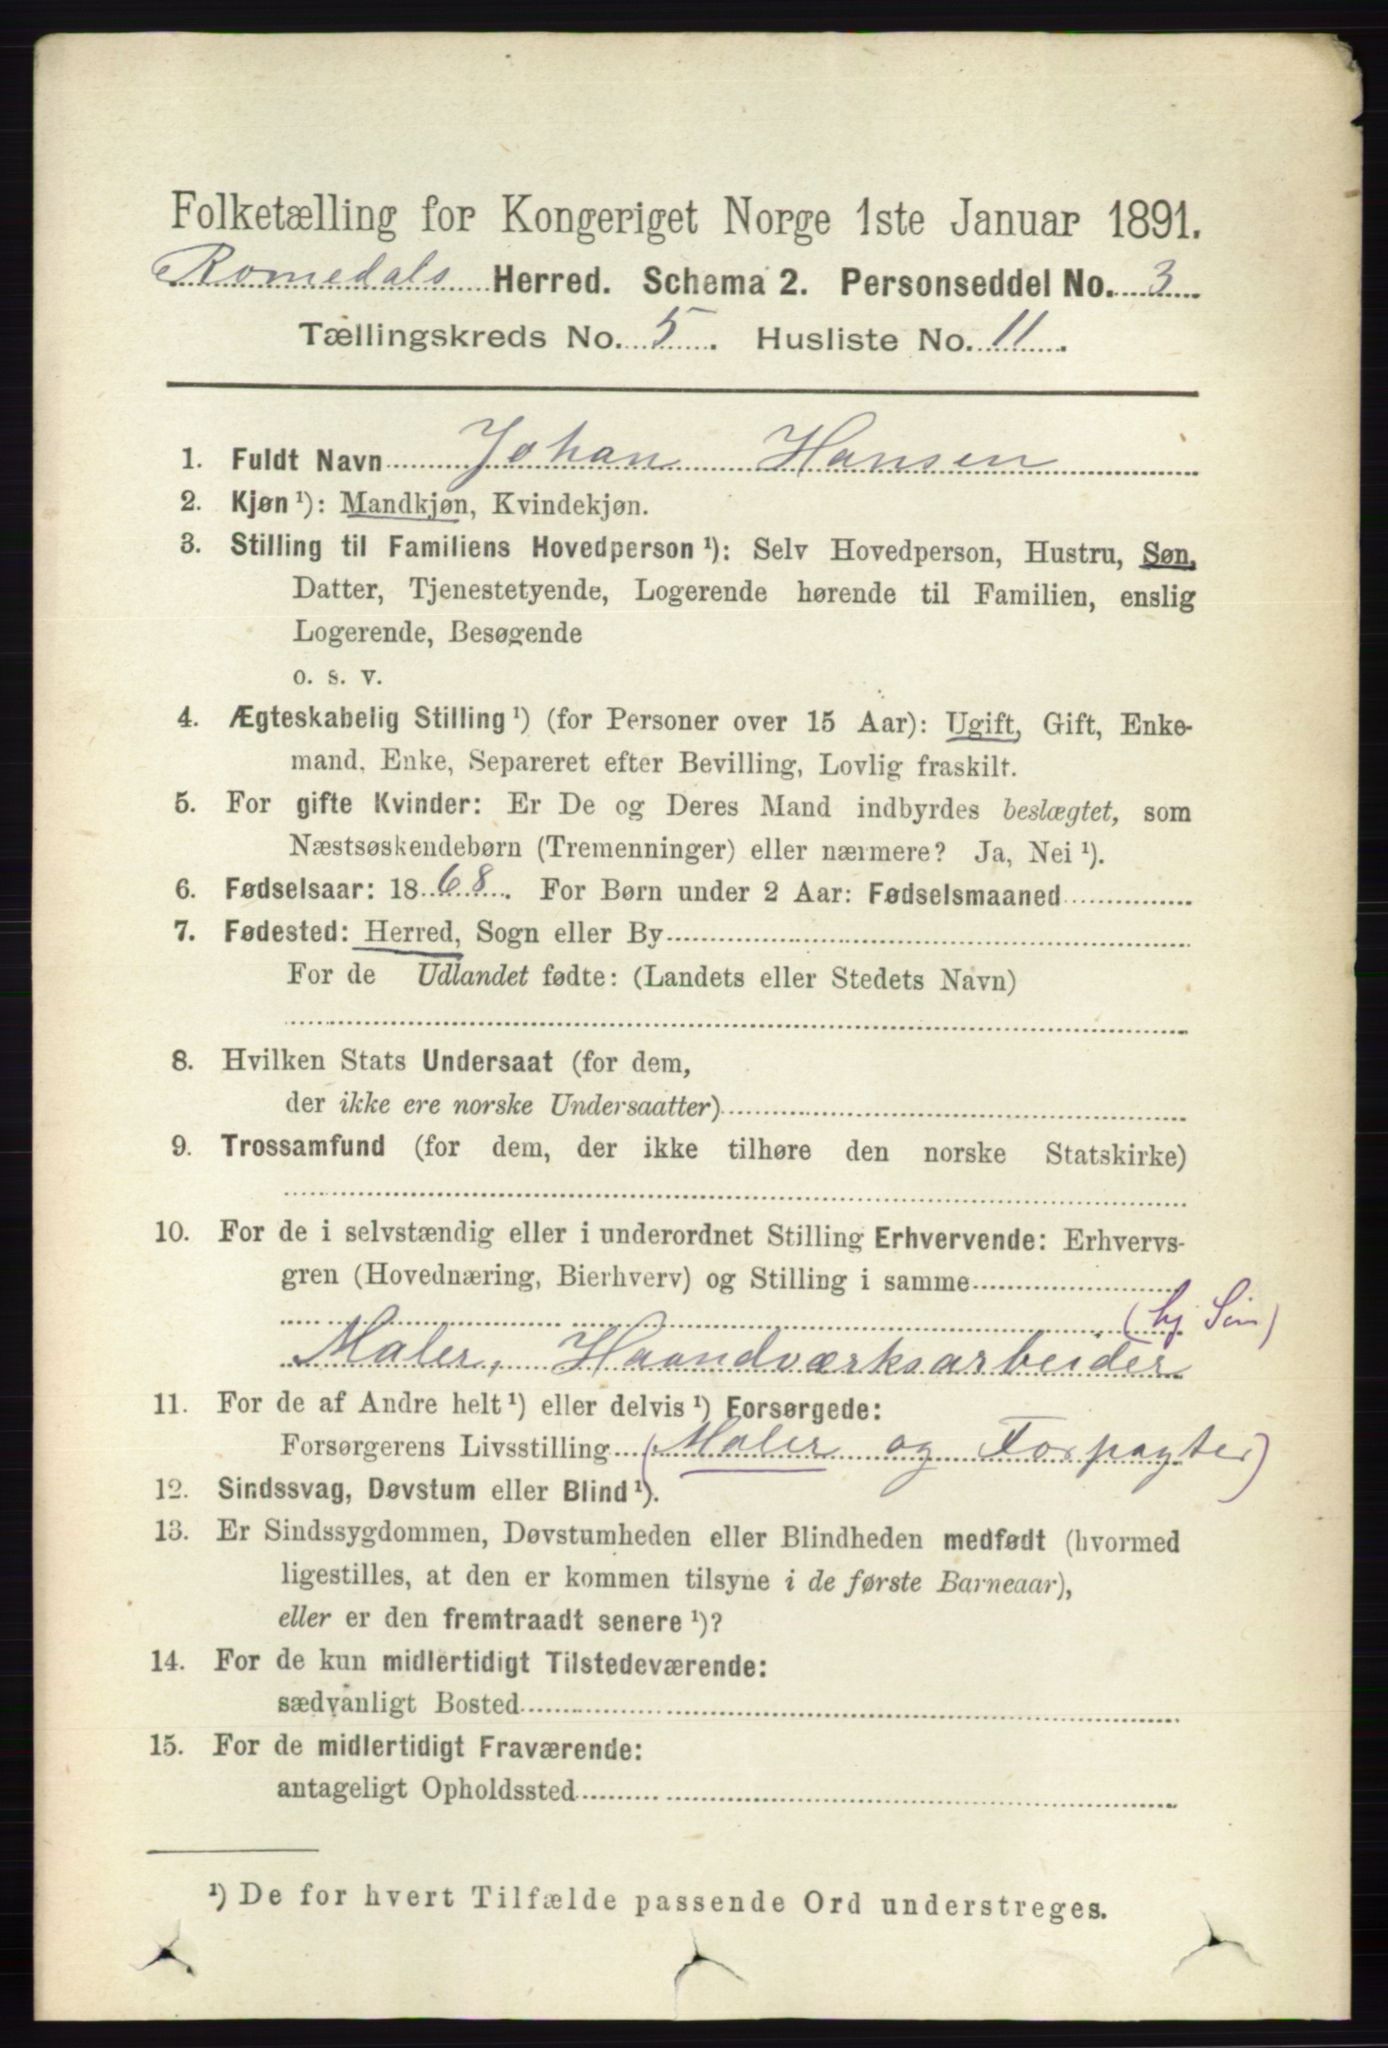 Folketælling for Kongeriget Norge 1ste Januar 1891.
Romedals Herred. Schema 2. Personseddel No. 3
Tællingskreds No. 5. Husliste No. 11.
1. Fuldt Navn Johan Hansen
2. Kjøn ¹): Mandkjøn, Kvindekjøn.
3. Stilling til Familiens Hovedperson ¹): Selv Hovedperson, Hustru, Søn,
Datter, Tjenestetyende, Logerende hørende til Familien, enslig
Logerende, Besøgende
o. s. v.
4. Ægteskabelig Stilling ¹) (for Personer over 15 Aar): Ugift, Gift, Enke-
mand, Enke, Separeret efter Bevilling, Lovlig fraskilt.
5. For gifte Kvinder: Er De og Deres Mand indbyrdes beslægtet, som
Næstsøskendebørn (Tremenninger) eller nærmere? Ja, Nei ¹).
6. Fødselsaar: 1868. For Børn under 2 Aar: Fødselsmaaned
7. Fødested: Herred, Sogn eller By
For de Udlandet fødte: (Landets eller Stedets Navn)
8. Hvilken Stats Undersaat (for dem,
der ikke ere norske Undersaatter)
9. Trossamfund (for dem, der ikke tilhøre den norske Statskirke)
10. For de i selvstændig eller i underordnet Stilling Erhvervende: Erhvervs-
gren (Hovednæring, Bierhverv) og Stilling i samme
(hj Søn)
Maler, Haandværksarbeider
11. For de af Andre helt ¹) eller delvis ¹) Forsørgede:
Forsørgerens Livsstilling (Maler og Forpagter)
12. Sindssvag, Døvstum eller Blind ¹).
13. Er Sindssygdommen, Døvstumheden eller Blindheden medfødt (hvormed
ligestilles, at den er kommen tilsyne i de første Barneaar),
eller er den fremtraadt senere ¹)?
14. For de kun midlertidigt Tilstedeværende:
sædvanligt Bosted
15. For de midlertidigt Fraværende:
antageligt Opholdssted
¹) De for hvert Tilfælde passende Ord understreges.